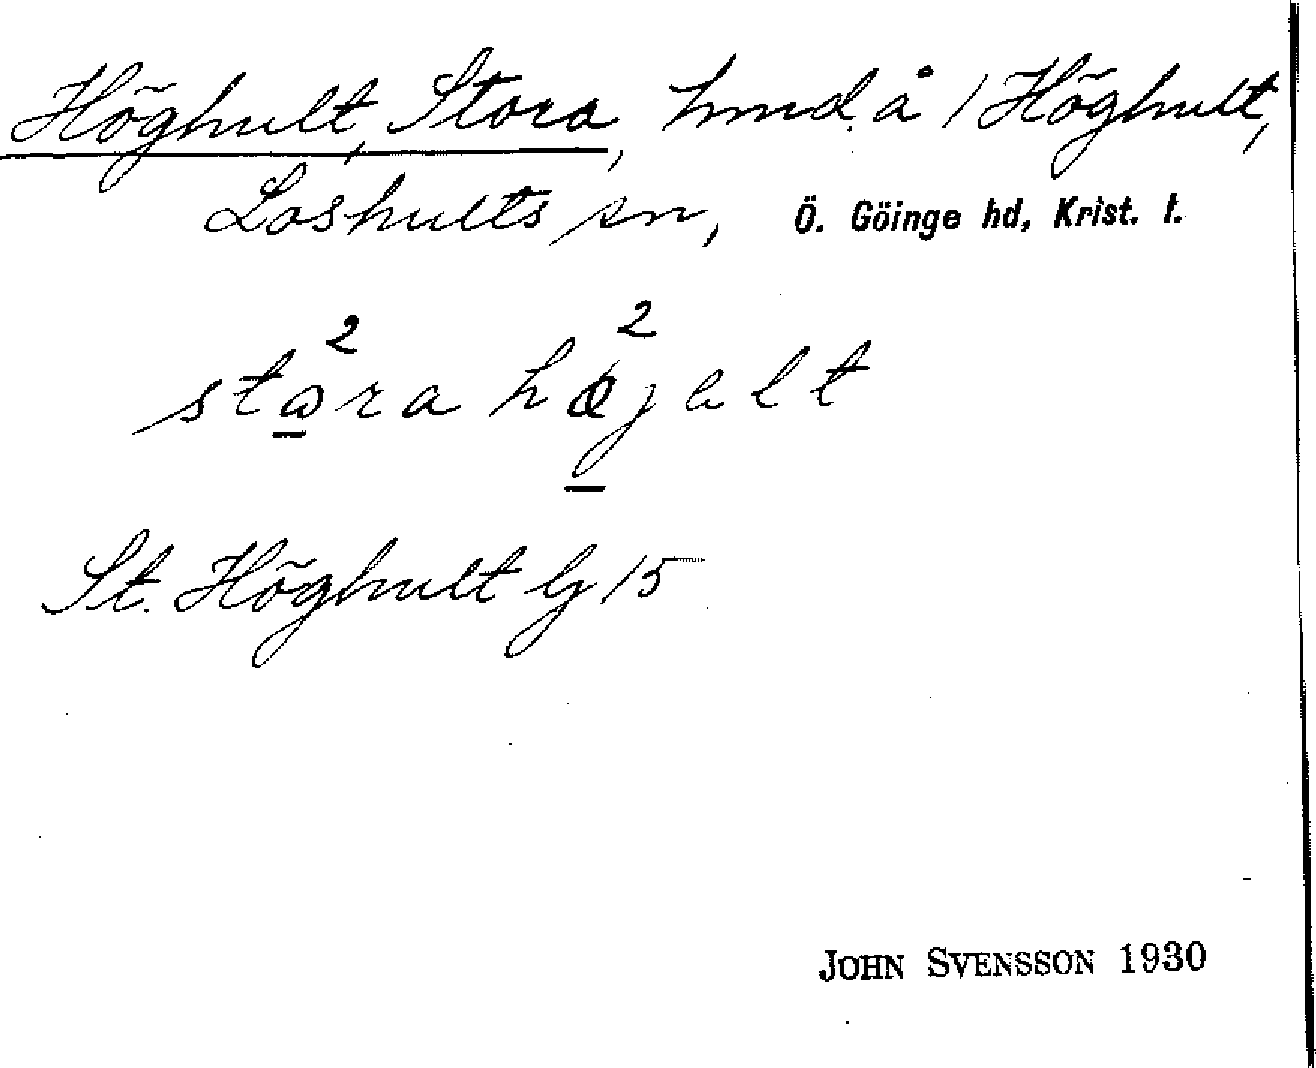 Höghult, Stora, hmd. å 1 Höghult,
Loshults sn, Ö. Göinge hd, Krist. l.
2 2
stɷra høgalt
St. Höghult Gj 15
JOHN SVENSSON 1930